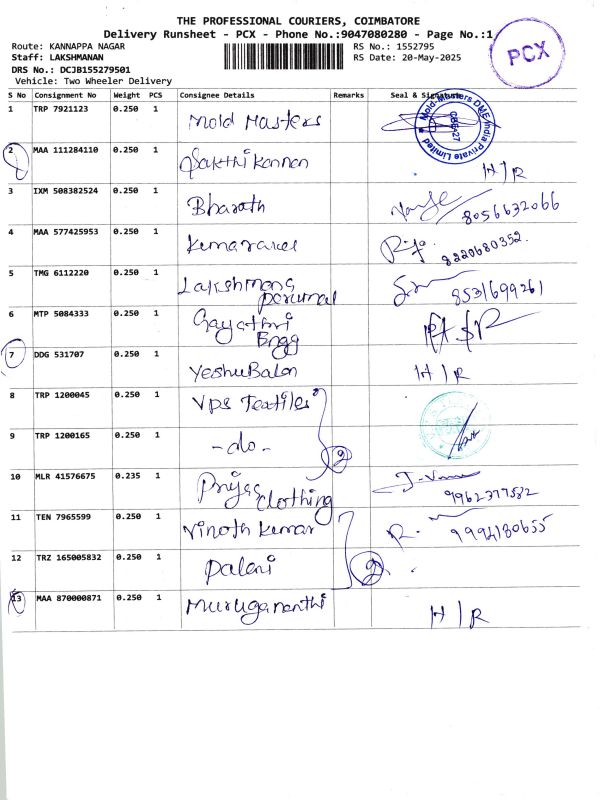 THE PROFESSIONAL COURIERS, COIMBATORE
Delivery Runsheet - PCX - Phone No.:9047080280 - Page No.:1
Route: KANNAPPA NAGAR RS No.: 1552795
Staff: LAKSHMANAN RS Date: 20-May-2025
DRS No.: DCJB155279501
Vehicle: Two Wheeler Delivery
PCX
S No Consignment No Weight PCS Consignee Details Remarks Seal & Signature
1 TRP 7921123 0.250 1 Mold Masters
Mold-Masters DME India Private Limited
2 MAA 111284110 0.250 1 Sakthi Kannan H/R
3 IXM 508382524 0.250 1 Bharath 8056632066
4 MAA 577425953 0.250 1 8220680352
5 TMG 6112220 0.250 1 Lakshmana perumal 8531699261
6 MTP 5084333 0.250 1 Gayathri Engg
7 DDG 531707 0.250 1 YeshuBalan H/R
8 TRP 1200045 0.250 1 VPS Textiles
9 TRP 1200165 0.250 1 -do- 2
10 MLR 41576675 0.235 1 Clothing 9962377582
11 TEN 7965599 0.250 1 Vinoth Kumar R. 9994180655
12 TRZ 165005832 0.250 1 Palani 2
13 MAA 870000871 0.250 1 Murugananthi H/R